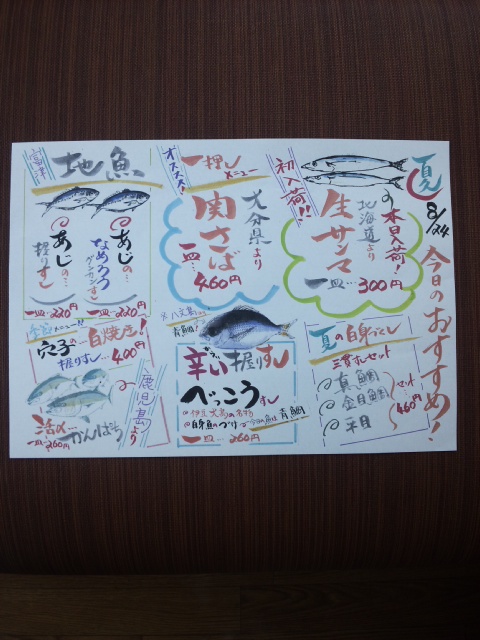 夏
8/24
今日のおすすめ!
初入荷!!
本日入荷!
の
北海道より
生サンマ
一皿…300円
オススメ!
一押し
メニュー
大分県より
関さば
一皿…460円
富津
地魚
あじの…
なめろう
グンカンすし
一皿…220円
あじの…
握りすし
一皿…220円
夏の白身づくし
三貫セット
真鯛
金目鯛
平目
セット
460円
青鯛!
辛い握りすし
べっこうすし
伊豆大島の名物
白身魚のづけ
今日の魚は青鯛
一皿…260円
メニュー!!
穴子の白焼き!
握りすし…400円
鹿児島より
活〆…かんぱち
一皿…260円